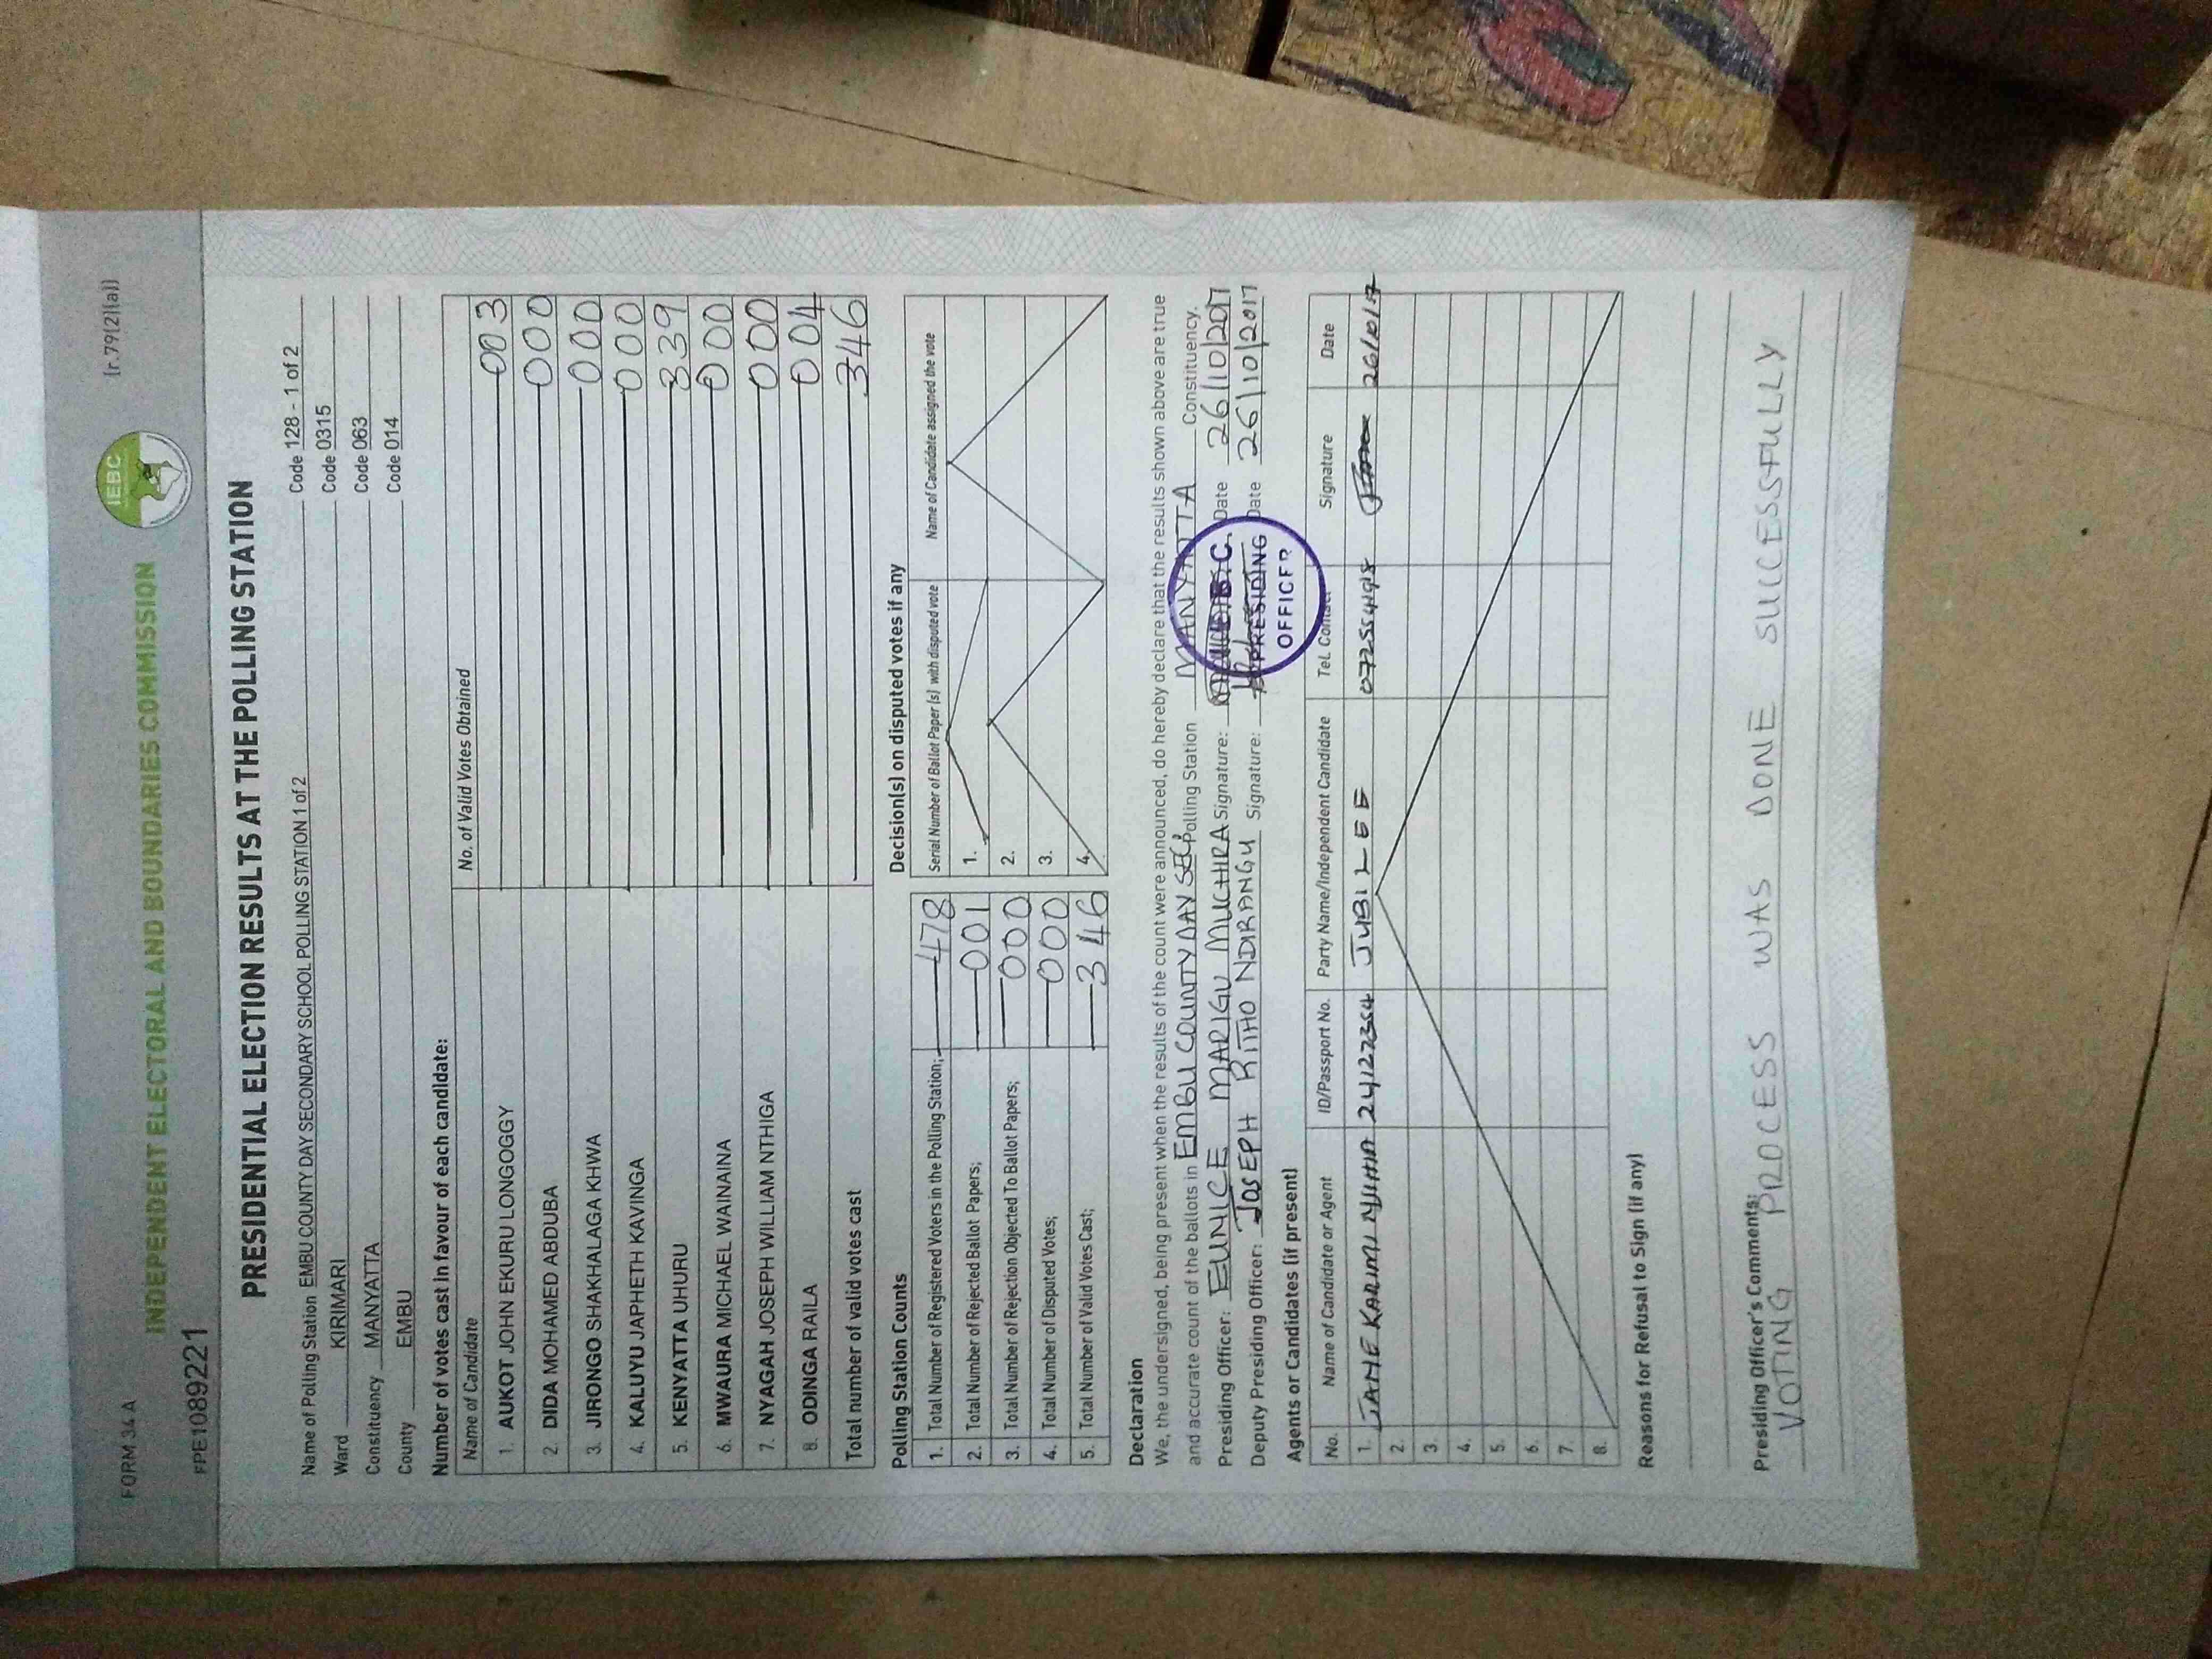 FORM 34 A
(r.79(2)(a))
IEBC
INDEPENDENT ELECTORAL AND BOUNDARIES COMMISSION
FPE1089221
PRESIDENTIAL ELECTION RESULTS AT THE POLLING STATION
Name of Polling Station EMBU COUNTY DAY SECONDARY SCHOOL POLLING STATION 1 of 2 Code 128 - 1 of 2
Ward KIRIMARI Code 0315
Constituency MANYATTA Code 063
County EMBU Code 014
Number of votes cast in favour of each candidate:
Name of Candidate No. of Valid Votes Obtained
1. AUKOT JOHN EKURU LONGOGGY 003
2 DIDA MOHAMED ABDUBA 000
3. JIRONGO SHAKHALAGA KHWA 000
4. KALUYU JAPHETH KAVINGA 000
5. KENYATTA UHURU 339
6. MWAURA MICHAEL WAINAINA 000
7. NYAGAH JOSEPH WILLIAM NTHIGA 000
8. ODINGA RAILA 004
Total number of valid votes cast 346
Polling Station Counts
1. Total Number of Registered Voters in the Polling Station; 478
2. Total Number of Rejected Ballot Papers; 001
3. Total Number of Rejection Objected To Ballot Papers; 000
4. Total Number of Disputed Votes; 000
5. Total Number of Valid Votes Cast; 346
Decision(s) on disputed votes if any
Serial Number of Ballot Paper (s) with disputed vote Name of Candidate assigned the vote
1.
2.
3.
4.
Declaration
We, the undersigned, being present when the results of the count were announced, do hereby declare that the results shown above are true
and accurate count of the ballots in EMBU COUNTY DAY SEC, Polling Station MANYATTA Constituency.
Presiding Officer: EUNICE MARIGU MUCHIRA Signature: Date 26/10/2017
Deputy Presiding Officer: JOSEPH RITHO NDIRANGU Signature: Date 26/10/2017
I.E.B.C.
PRESIDING
OFFICER
Agents or Candidates (if present)
No. Name of Candidate or Agent ID/Passport No. Party Name/Independent Candidate Tel. Contact Signature Date
1. JANE KARIMI 24122364 JUBILEE 26/10/17
2.
3.
4.
5.
6.
7.
8.
Reasons for Refusal to Sign (if any)
Presiding Officer's Comments:
VOTING PROCESS WAS DONE SUCCESSFULLY